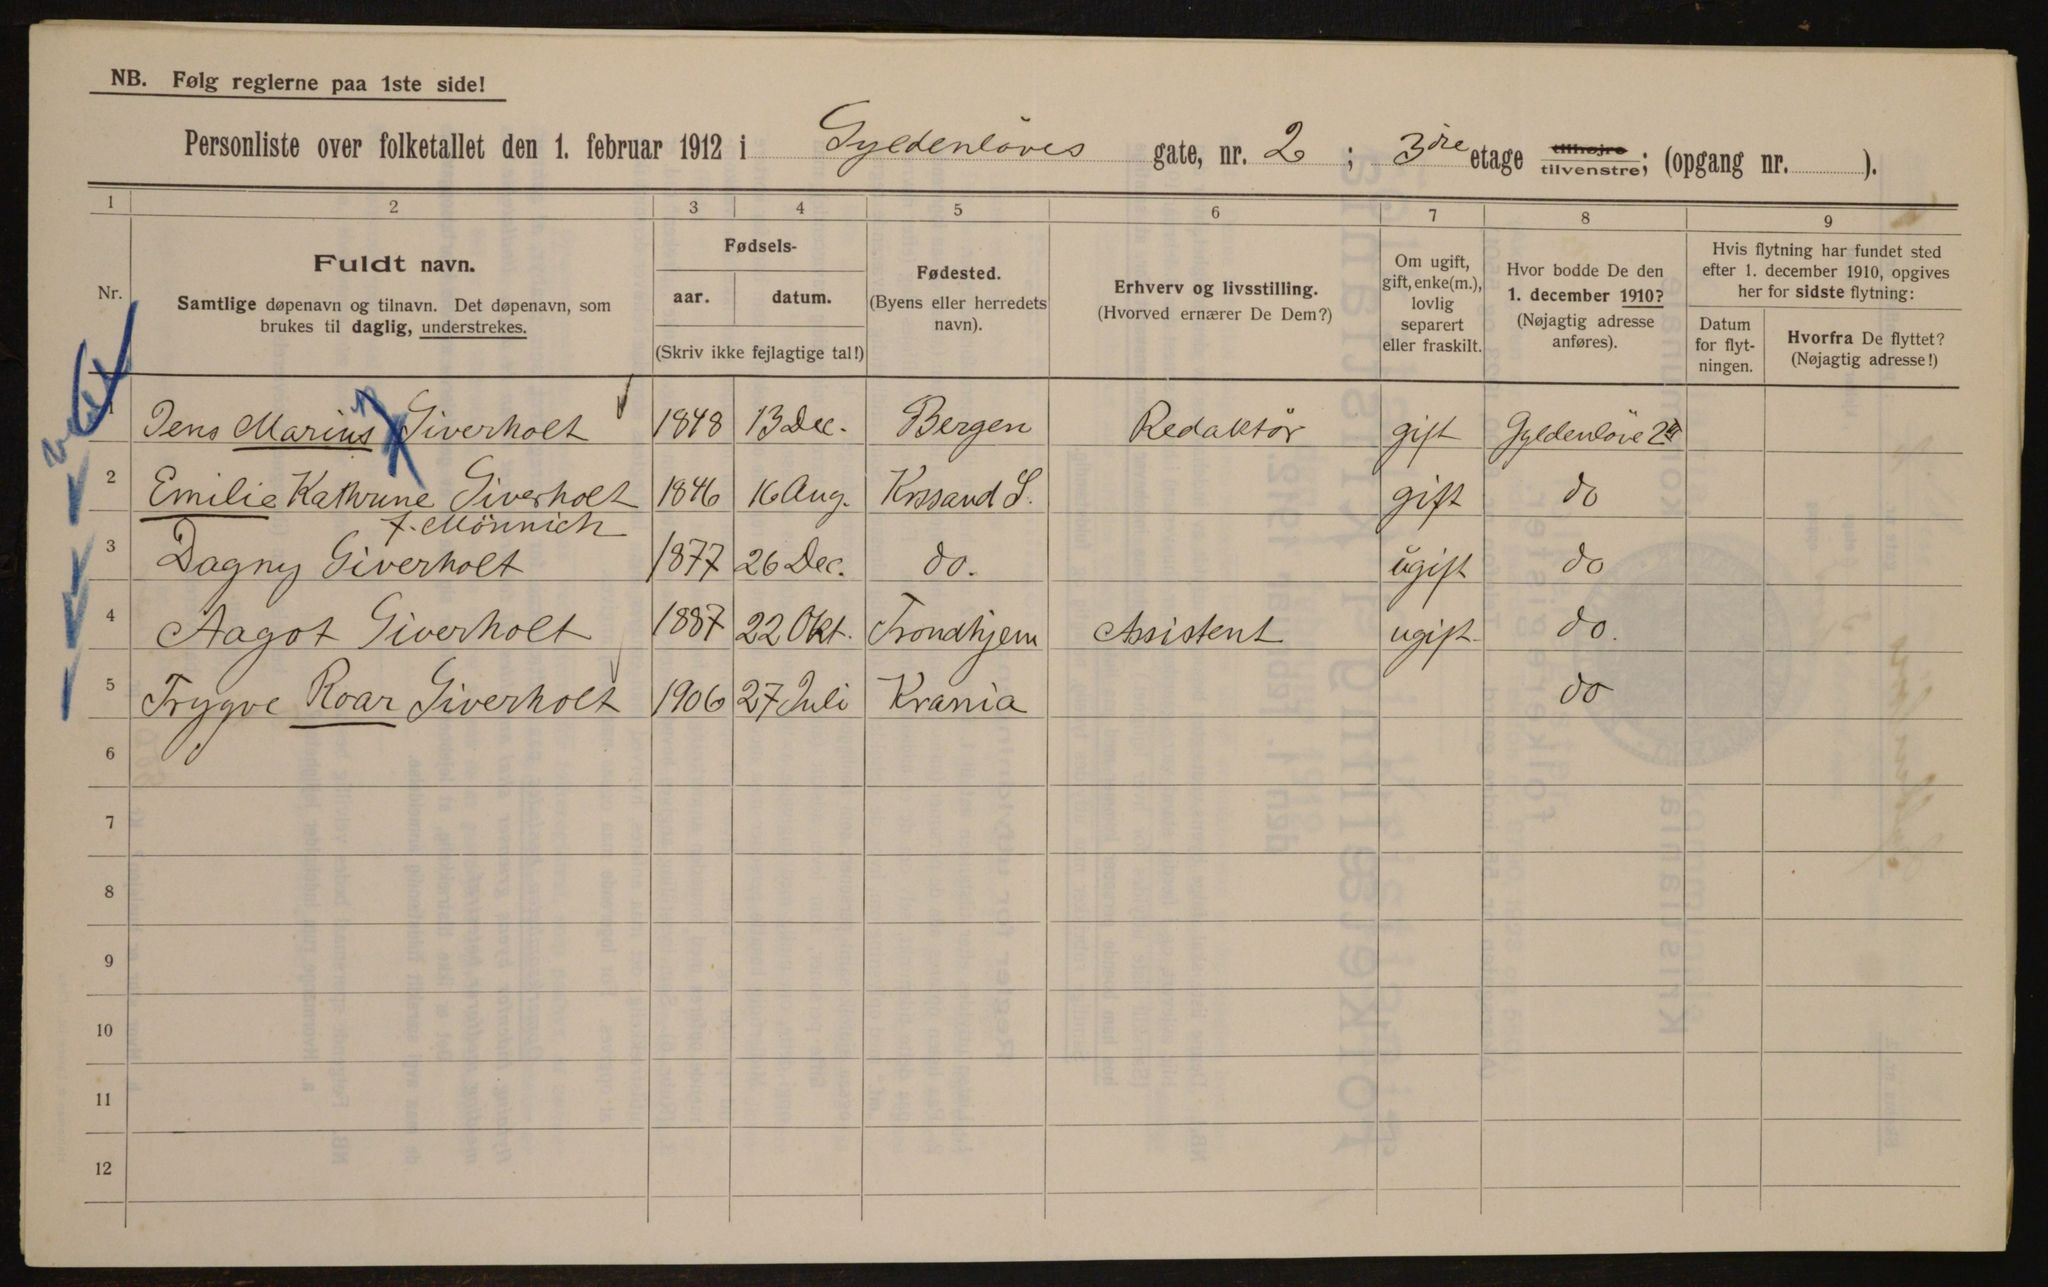 NB. Følg reglerne paa 1ste side!
Personliste over folketallet den 1. februar 1912 i Gyldenløves gate, nr. 2 ; 3die etage tilhøjre tilvenstre; (opgang nr. ).
1 2 3 4 5 6 7 8 9
Nr.
Fuldt navn.
Samtlige døpenavn og tilnavn. Det døpenavn, som
brukes til daglig, understrekes.
Fødsels-
aar. datum.
(Skriv ikke fejlagtige tal!)
Fødested.
(Byens eller herredets
navn).
Erhverv og livsstilling.
(Hvorved ernærer De Dem?)
Om ugift,
gift, enke(m.),
lovlig
separert
eller fraskilt.
Hvor bodde De den
1. december 1910?
(Nøjagtig adresse
anføres).
Hvis flytning har fundet sted
efter 1. december 1910, opgives
her for sidste flytning:
Datum
for flyt-
ningen.
Hvorfra De flyttet?
(Nøjagtig adresse!)
1 Jens Marius Giverholt 1848 13 Dec. Bergen Redaktør gift Gyldenløve 2
2 Emilie Kathrine Giverholt 1846 16 Aug. Krssand S. gift do
f. Mönnich
3 Dagny Giverholt 1877 26 Dec. do. ugift do
4 Aagot Giverholt 1887 22 Okt. Trondhjem Assistent ugift do.
5 Trygve Roar Giverholt 1906 27 Juli Krania do
6
7
8
9
10
11
12